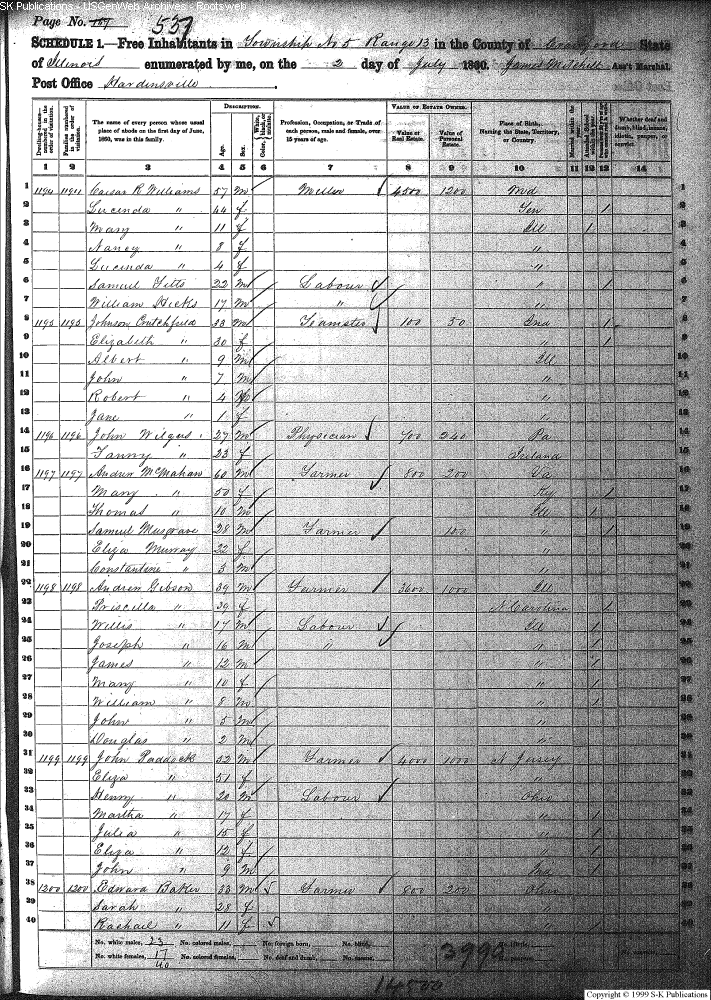 SK Publications - USGenWeb Archives - Rootsweb
Page No. 107 537
SCHEDULE 1.—Free Inhabitants in Township No 5 Range 13 in the County of Crawford State
of Illinois enumerated by me, on the 2 day of July 1860. James Mitchell Ass't Marshal.
Post Office Hardinsville
Dwelling-houses numbered in the order of visitation.
Families numbered in the order of visitation.
The name of every person whose usual place of abode on the first day of June, 1860, was in this family.
DESCRIPTION.
Age.
Sex.
Color, White, black, or mulatto.
Profession, Occupation, or Trade of each person, male and female, over 15 years of age.
VALUE OF ESTATE OWNED.
Value of Real Estate.
Value of Personal Estate.
Place of Birth, Naming the State, Territory, or Country.
Married within the year.
Whether deaf and dumb, blind, insane, idiotic, pauper, or convict.
1 2 3 4 5 6 7 8 9 10 11 12 13 14
1 1194 1194 Caesar R Williams 57 m Miller 4500 1200 Md 1
2 Lucinda " 44 f Ten 1 2
3 Mary " 11 f Ill 1 3
4 Nancy " 8 f " 4
5 Lucinda " 4 f " 5
6 Samuel Titts 22 m Labour " 1 6
7 William Hicks 17 m " " 7
8 1195 1195 Johnson Crutchfield 33 m Teamster 100 50 Ind 1 8
9 Elizabeth " 30 f " 1 9
10 Albert " 9 m Ill 10
11 John " 7 m " 11
12 Robert " 4 m " 12
13 Jane " 1 f " 13
14 1196 1196 John Wilgus 27 m Physician 700 240 Pa 14
15 Fanny " 23 f Ireland 15
16 1197 1197 Andrew McMahan 60 m Farmer 800 200 Va 16
17 Mary " 50 f Ky 1 17
18 Thomas " 10 m Ill 1 18
19 Samuel Musgrave 28 m Farmer 100 " 1 19
20 Eliza Murray 22 f " 20
21 Constantine " 3 m " 21
22 1198 1198 Andrew Gibson 39 m Farmer 3600 1000 Ill 22
23 Priscilla " 39 f N Carolina 1 23
24 Willis " 17 m Labour Ill 1 24
25 Joseph " 16 m " " 1 25
26 James " 12 m " 1 26
27 Mary " 10 f " 1 27
28 William " 8 m " 1 28
29 John " 5 m " 29
30 Douglas " 2 m " 30
31 1199 1199 John Paddock 52 m Farmer 4000 1000 N Jersey 31
32 Eliza " 51 f " 32
33 Henry " 20 m Labour Ohio 33
34 Martha " 17 f 1 34
35 Julia " 15 f 1 35
36 Eliza " 12 f 1 36
37 John " 9 m 1 37
38 1200 1200 Edward Baker 33 m Farmer 800 200 Ohio 38
39 Sarah " 28 f " 39
40 Rachael " 11 f 1 40
No. white males, 23 No. colored males, No. foreign born, No. blind,
No. white females, 17 No. colored females, No. deaf and dumb, No. insane,
40
3990
14500
Copyright © 1999 S-K Publications